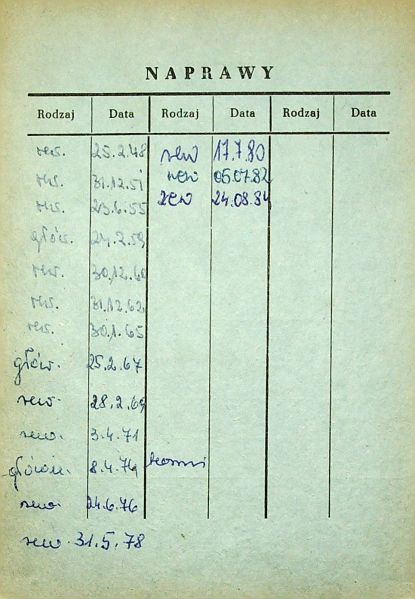 NAPRAWY
Rodzaj Data Rodzaj Data Rodzaj Data
rew. 25.2.48 rew 17.7.80
rew. 31.12.51 rew 05.07.82
rew. 23.6.55 rew 24.08.84
głów. 24.2.59
rew. 30.12.60
rew. 31.12.62
rew. 30.1.65
głów. 25.2.67
rew. 28.2.69
rew. 3.4.71
główn. 8.4.74
rew. 24.6.76
rew. 31.5.78